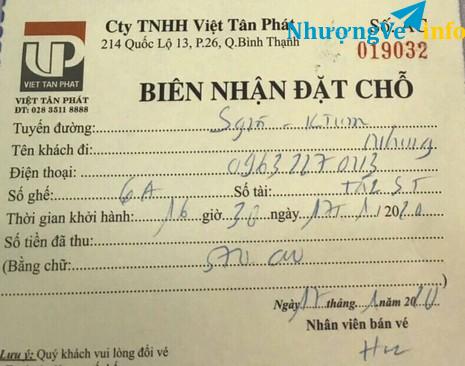 Cty TNHH Việt Tân Phát
214 Quốc Lộ 13, P.26, Q.Bình Thạnh
NhượngVe Info
Số: AC
019032
UP
VIET TAN PHAT
VIỆT TÂN PHÁT
ĐT: 028 3511 8888
BIÊN NHẬN ĐẶT CHỖ
Tuyến đường: Sgòn - KTum
Tên khách đi: Nhung
Điện thoại: 0963227023
Số ghế: 6A Số tài:
Thời gian khởi hành: 16 giờ 30 ngày 17/1/2020
Số tiền đã thu:
(Bằng chữ: 570
Ngày 17 tháng 1 năm 2020
Nhân viên bán vé
Lưu ý: Quý khách vui lòng đổi vé